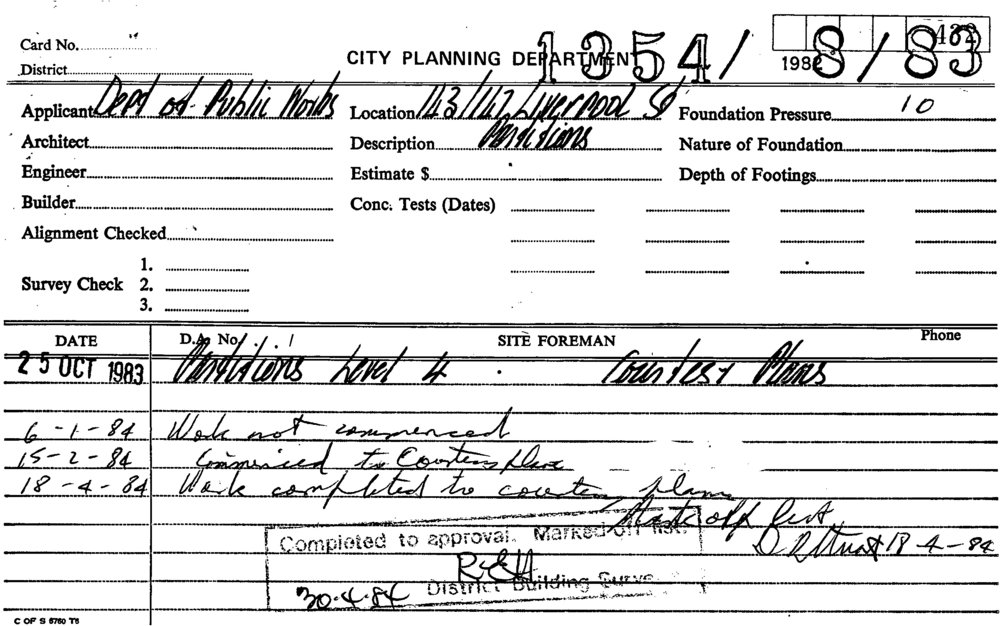 Card No.
District
CITY PLANNING DEPARTMENT
1354/8/83
432
198
Applicant Dept of Public Works
Location 143/147 Liverpool St
Foundation Pressure 10
Architect
Description Partitions
Nature of Foundation
Engineer
Estimate $
Depth of Footings
Builder
Conc. Tests (Dates)
Alignment Checked
Survey Check 1.
2.
3.
DATE
D.A. No.
SITE FOREMAN
Phone
25 OCT 1983 Partitions Level 4 Courtesy Plans
6-1-84 Work not commenced
15-2-84 Commenced to Courtesy plans
18-4-84 Work completed to courtesy plans
Mark off list
18-4-84
Completed to approval. Marked off list.
District Building Surve
30.4.84
C OF S 6760 T6